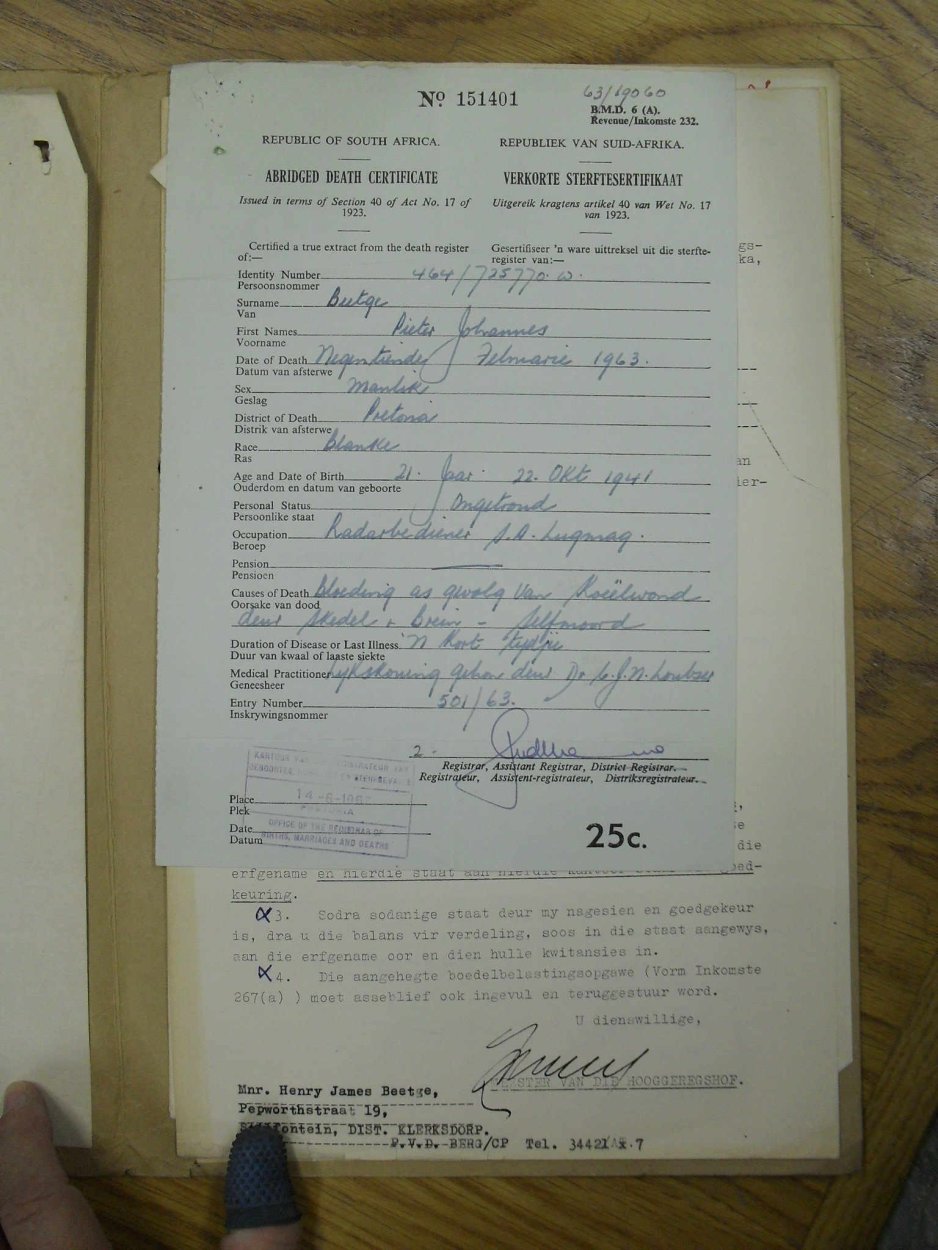 No 151401
63/19060
B.M.D. 6 (A).
Revenue/Inkomste 232.
REPUBLIC OF SOUTH AFRICA.
REPUBLIEK VAN SUID-AFRIKA.
ABRIDGED DEATH CERTIFICATE
VERKORTE STERFTESERTIFIKAAT
Issued in terms of Section 40 of Act No. 17 of
1923.
Uitgereik kragtens artikel 40 van Wet No. 17
van 1923.
Certified a true extract from the death register
of:—
Gesertifiseer 'n ware uittreksel uit die sterfte-
register van:—
Identity Number 464/725770. W.
Persoonsnommer
Surname Beetge
Van
First Names Pieter Johannes
Voorname
Date of Death Negentiende Februarie 1963.
Datum van afsterwe
Sex Manlik
Geslag
District of Death Pretoria
Distrik van afsterwe
Race Blanke
Ras
Age and Date of Birth 21. Jaar 22. Okt 1941
Ouderdom en datum van geboorte
Personal Status Ongetroud
Persoonlike staat
Occupation Radarbediener S.A. Lugmag.
Beroep
Pension
Pensioen
Causes of Death Bloeding as gevolg van Koeëlwond
Oorsake van dood
deur skedel + Brein - Selfmoord
Duration of Disease or Last Illness 'n Kort tydjie
Duur van kwaal of laaste siekte
Medical Practitioner Lykskouing gehou deur Dr C.J.N. Loubser
Geneesheer
Entry Number 501/63.
Inskrywingsnommer
2.
Registrar, Assistant Registrar, District Registrar.
Registrateur, Assistent-registrateur, Distriksregistrateur.
KANTOOR VAN
GEBOORTES
Place
Plek
PRETORIA
OFFICE OF THE REGISTRAR OF
BIRTHS, MARRIAGES AND DEATHS
Date
Datum
25c.
gs-
ka,
an
ier-
se
die
erfgename en hierdie staat aan hierdie kantoor
oed-
keuring.
3. Sodra sodanige staat deur my nagesien en goedgekeur
is, dra u die balans vir verdeling, soos in die staat aangewys,
aan die erfgename oor en dien hulle kwitansies in.
4. Die aangehegte boedelbelastingsopgawe (Vorm Inkomste
267(a) ) moet asseblief ook ingevul en teruggestuur word.
U dienswillige,
MEESTER VAN DIE HOOGGEREGSHOF.
Mnr. Henry James Beetge,
Pepworthstraat 19,
fontein, DIST. KLERKSDORP.
P.V.D. BERG/CP Tel. 34421 x 7